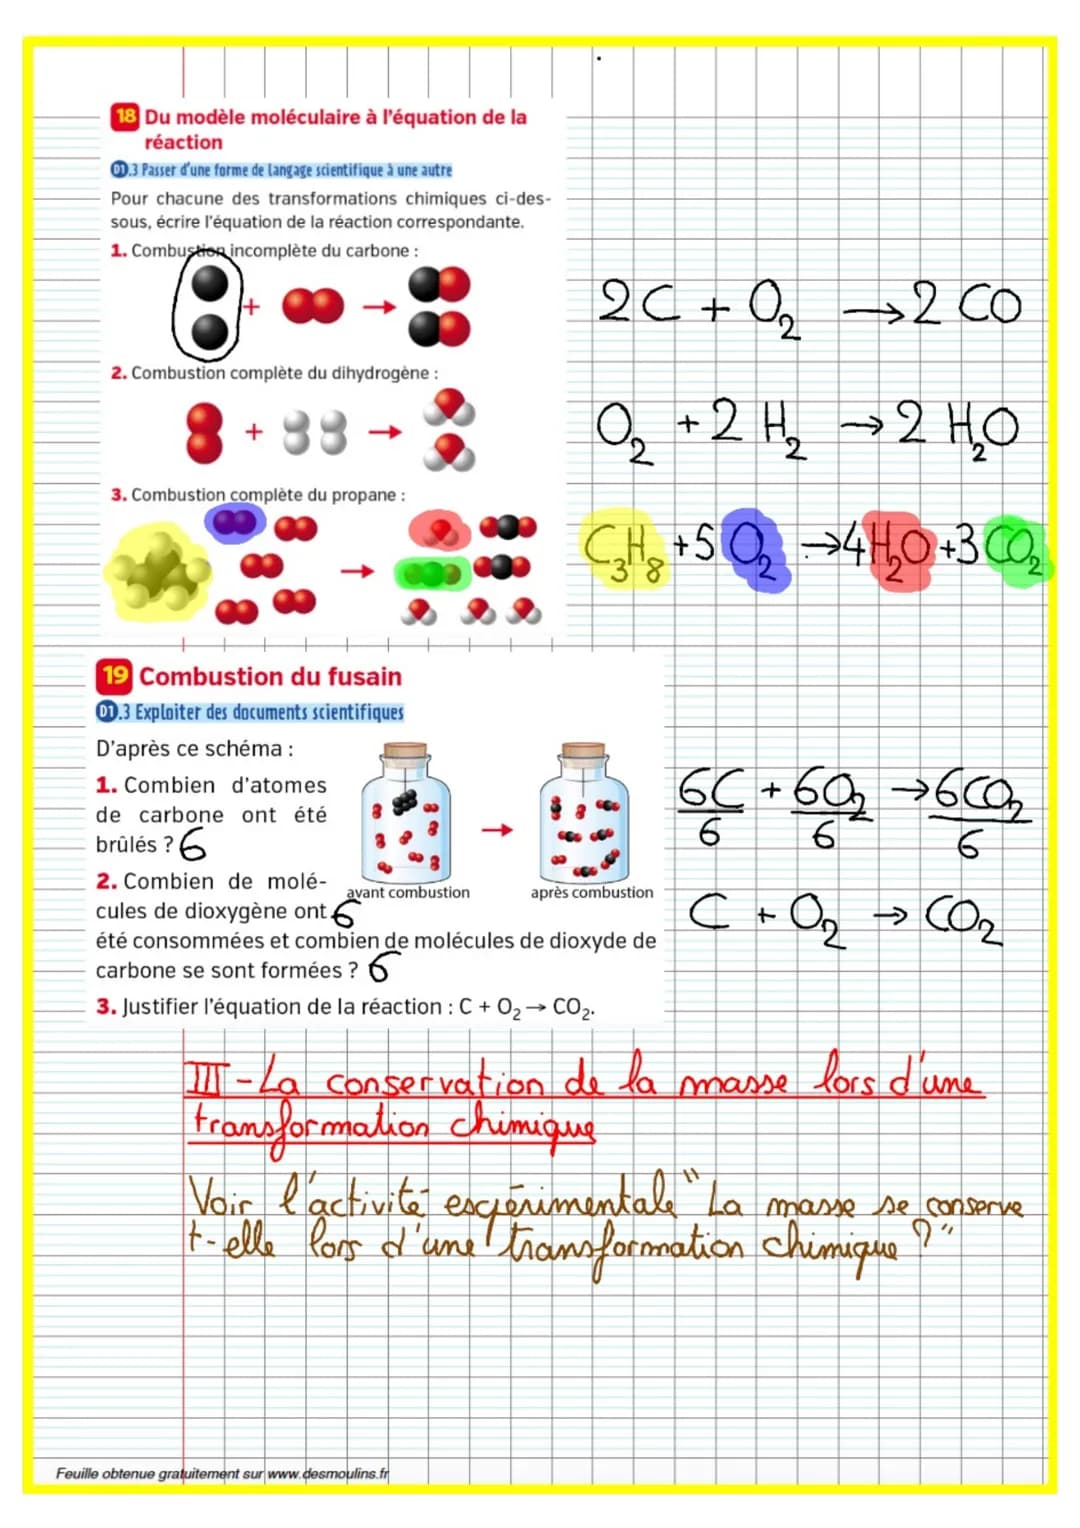 18 Du modèle moléculaire à l'équation de la
réaction
D1.3 Passer d'une forme de langage scientifique à une autre
Pour chacune des transformations chimiques ci-des-
sous, écrire l'équation de la réaction correspondante.
1. Combustion incomplète du carbone :
+ →
2C + O₂ → 2 CO
2. Combustion complète du dihydrogène :
+ →
O₂ + 2 H₂ → 2 H₂O
3. Combustion complète du propane :
→
C₃H₈ + 5 O₂ → 4 H₂O + 3 CO₂
19 Combustion du fusain
D1.3 Exploiter des documents scientifiques
D'après ce schéma :
1. Combien d'atomes
de carbone ont été
brûlés ? 6
2. Combien de molé-
cules de dioxygène ont 6
été consommées et combien de molécules de dioxyde de
carbone se sont formées ? 6
3. Justifier l'équation de la réaction : C + O₂ → CO₂.
avant combustion
→
après combustion
6C + 6O₂ → 6CO₂
6 6 6
C + O₂ → CO₂
III - La conservation de la masse lors d'une
transformation chimique
Voir l'activité expérimentale "La masse se conserve
t-elle lors d'une transformation chimique ?"
Feuille obtenue gratuitement sur www.desmoulins.fr